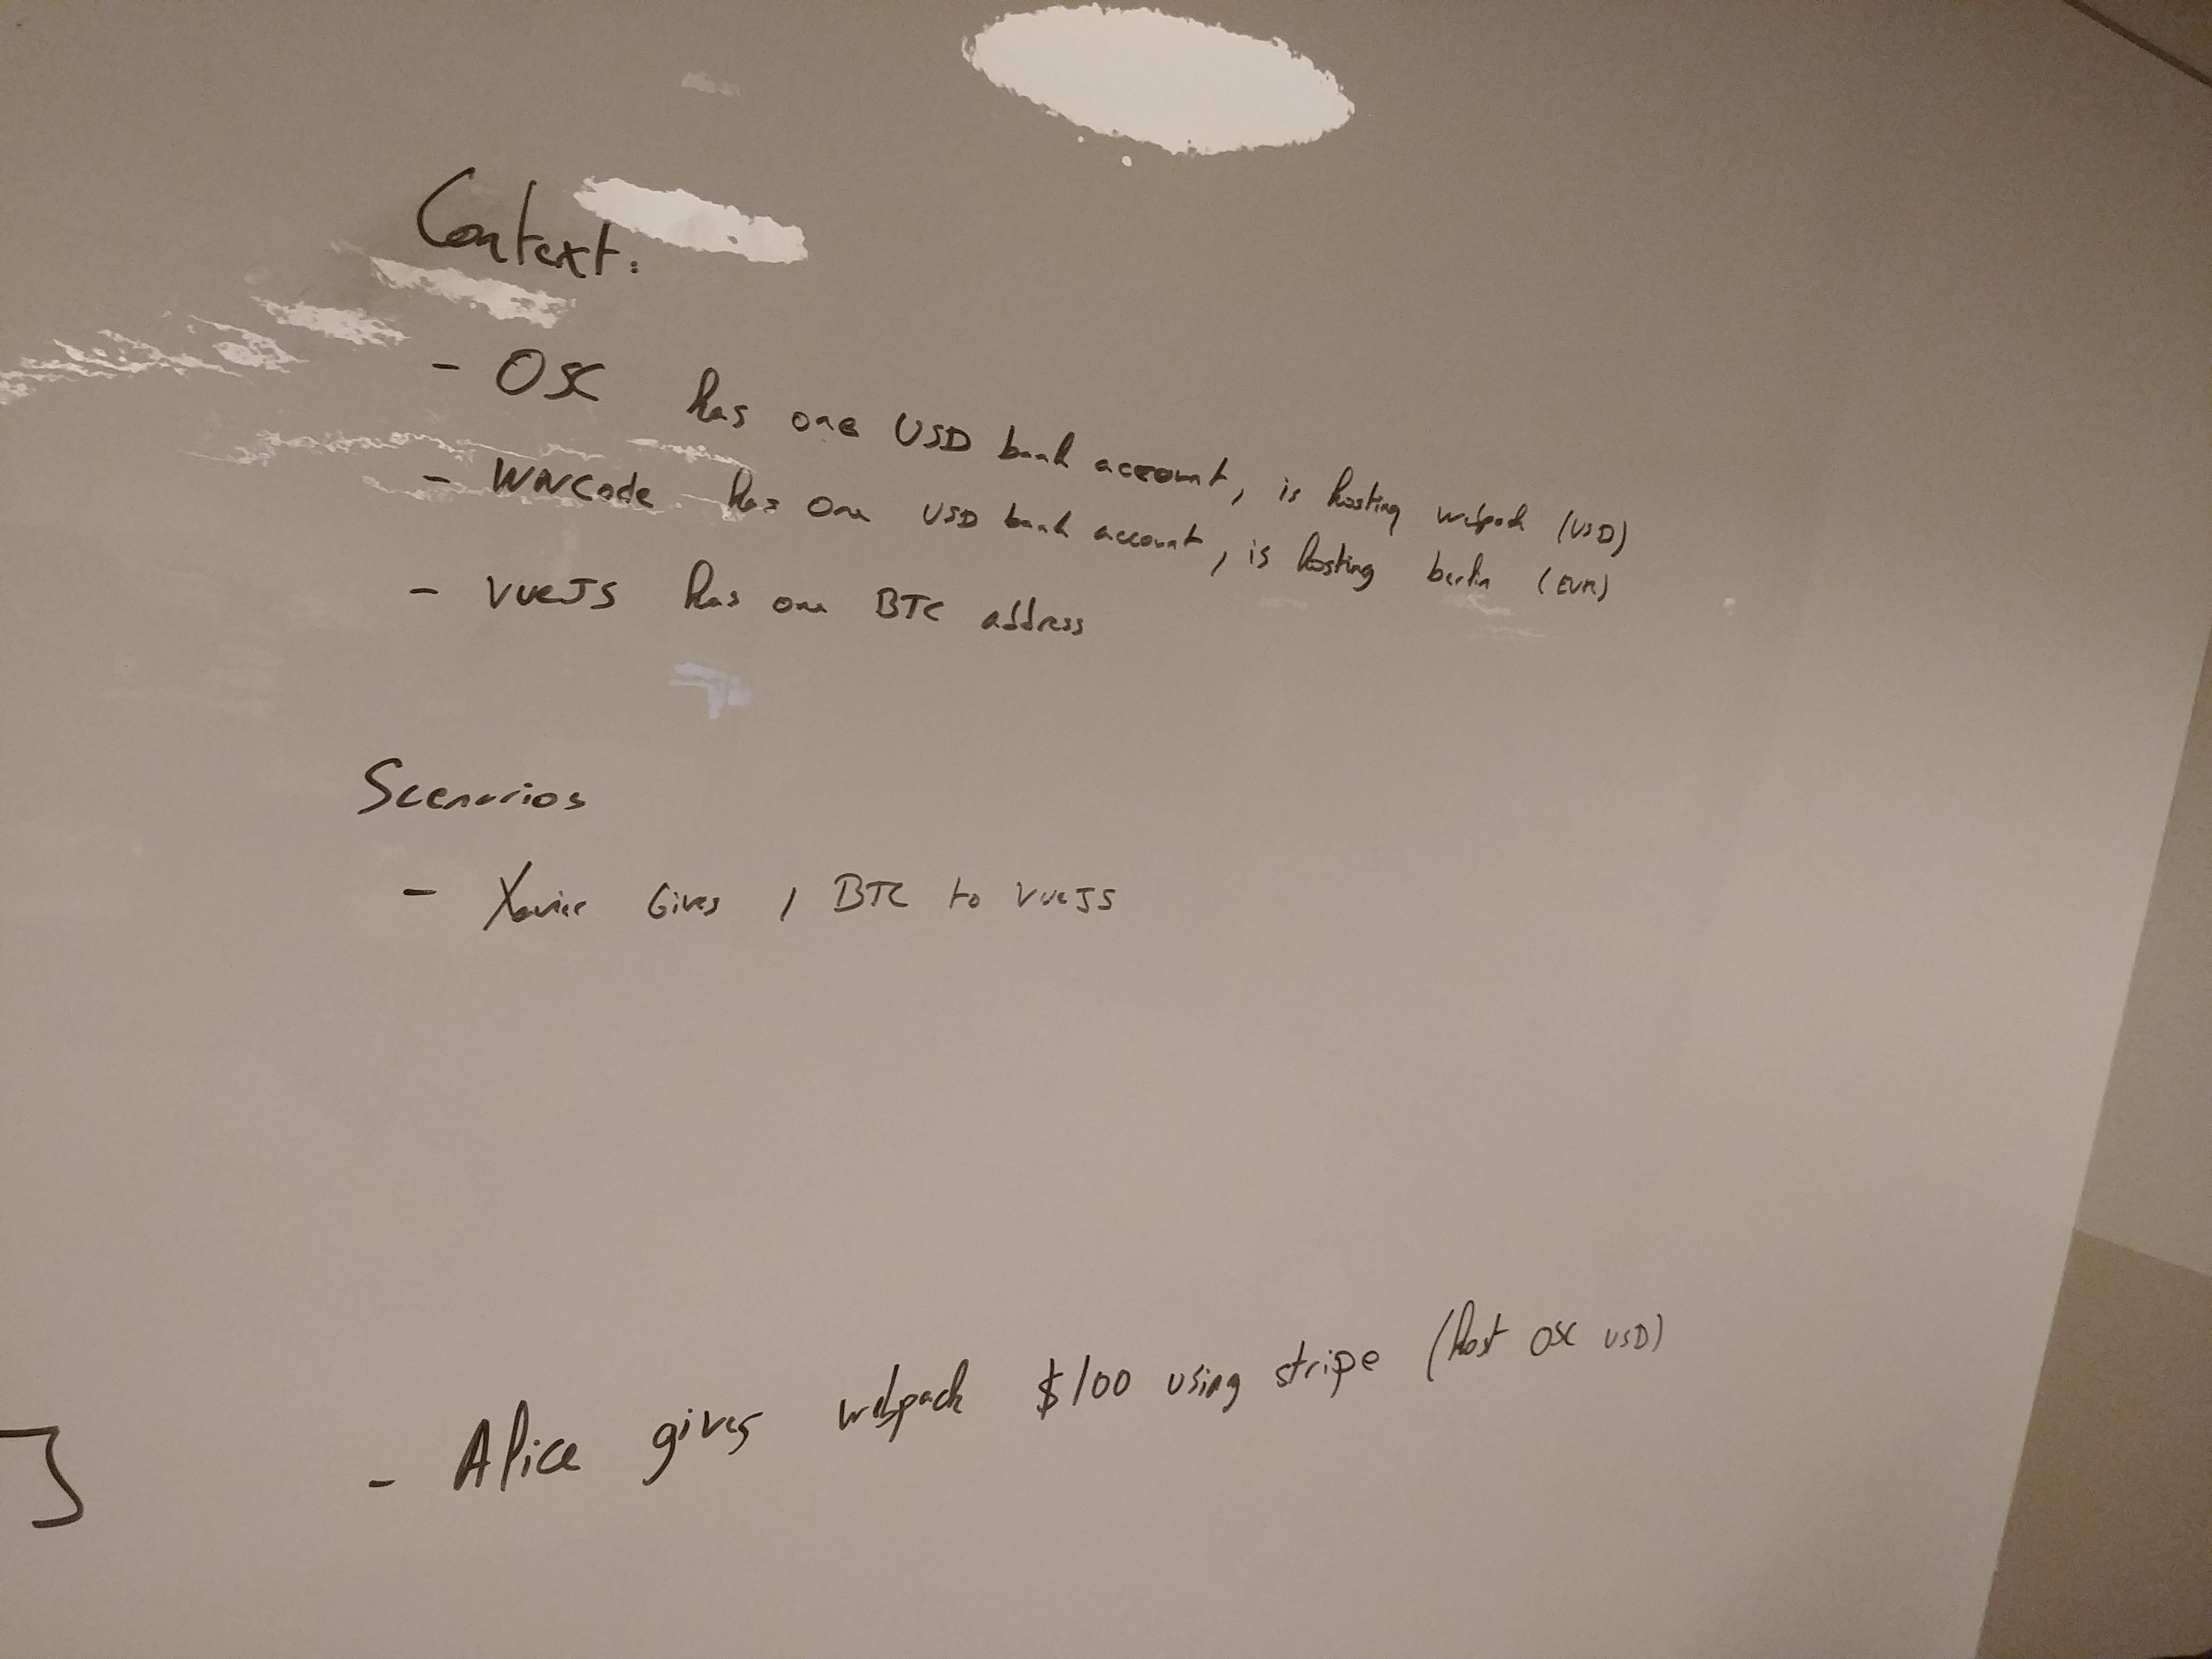 Context:
- OSC has one USD bank account, is hosting webpack (USD)
- WWCode has one USD bank account, is hosting berlin (EUR)
- VueJS has one BTC address
Scenarios
- Xavier Gives 1 BTC to VueJS
- Alice gives webpack $100 using stripe (host OSC USD)
]